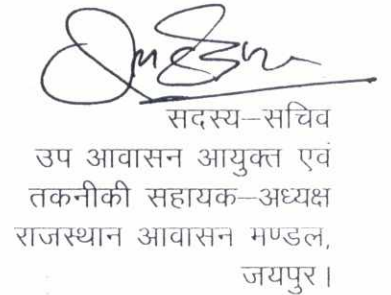 सदस्य–सचिव
उप आवासन आयुक्त एवं
तकनीकी सहायक–अध्यक्ष
राजस्थान आवासन मण्डल,
जयपुर।